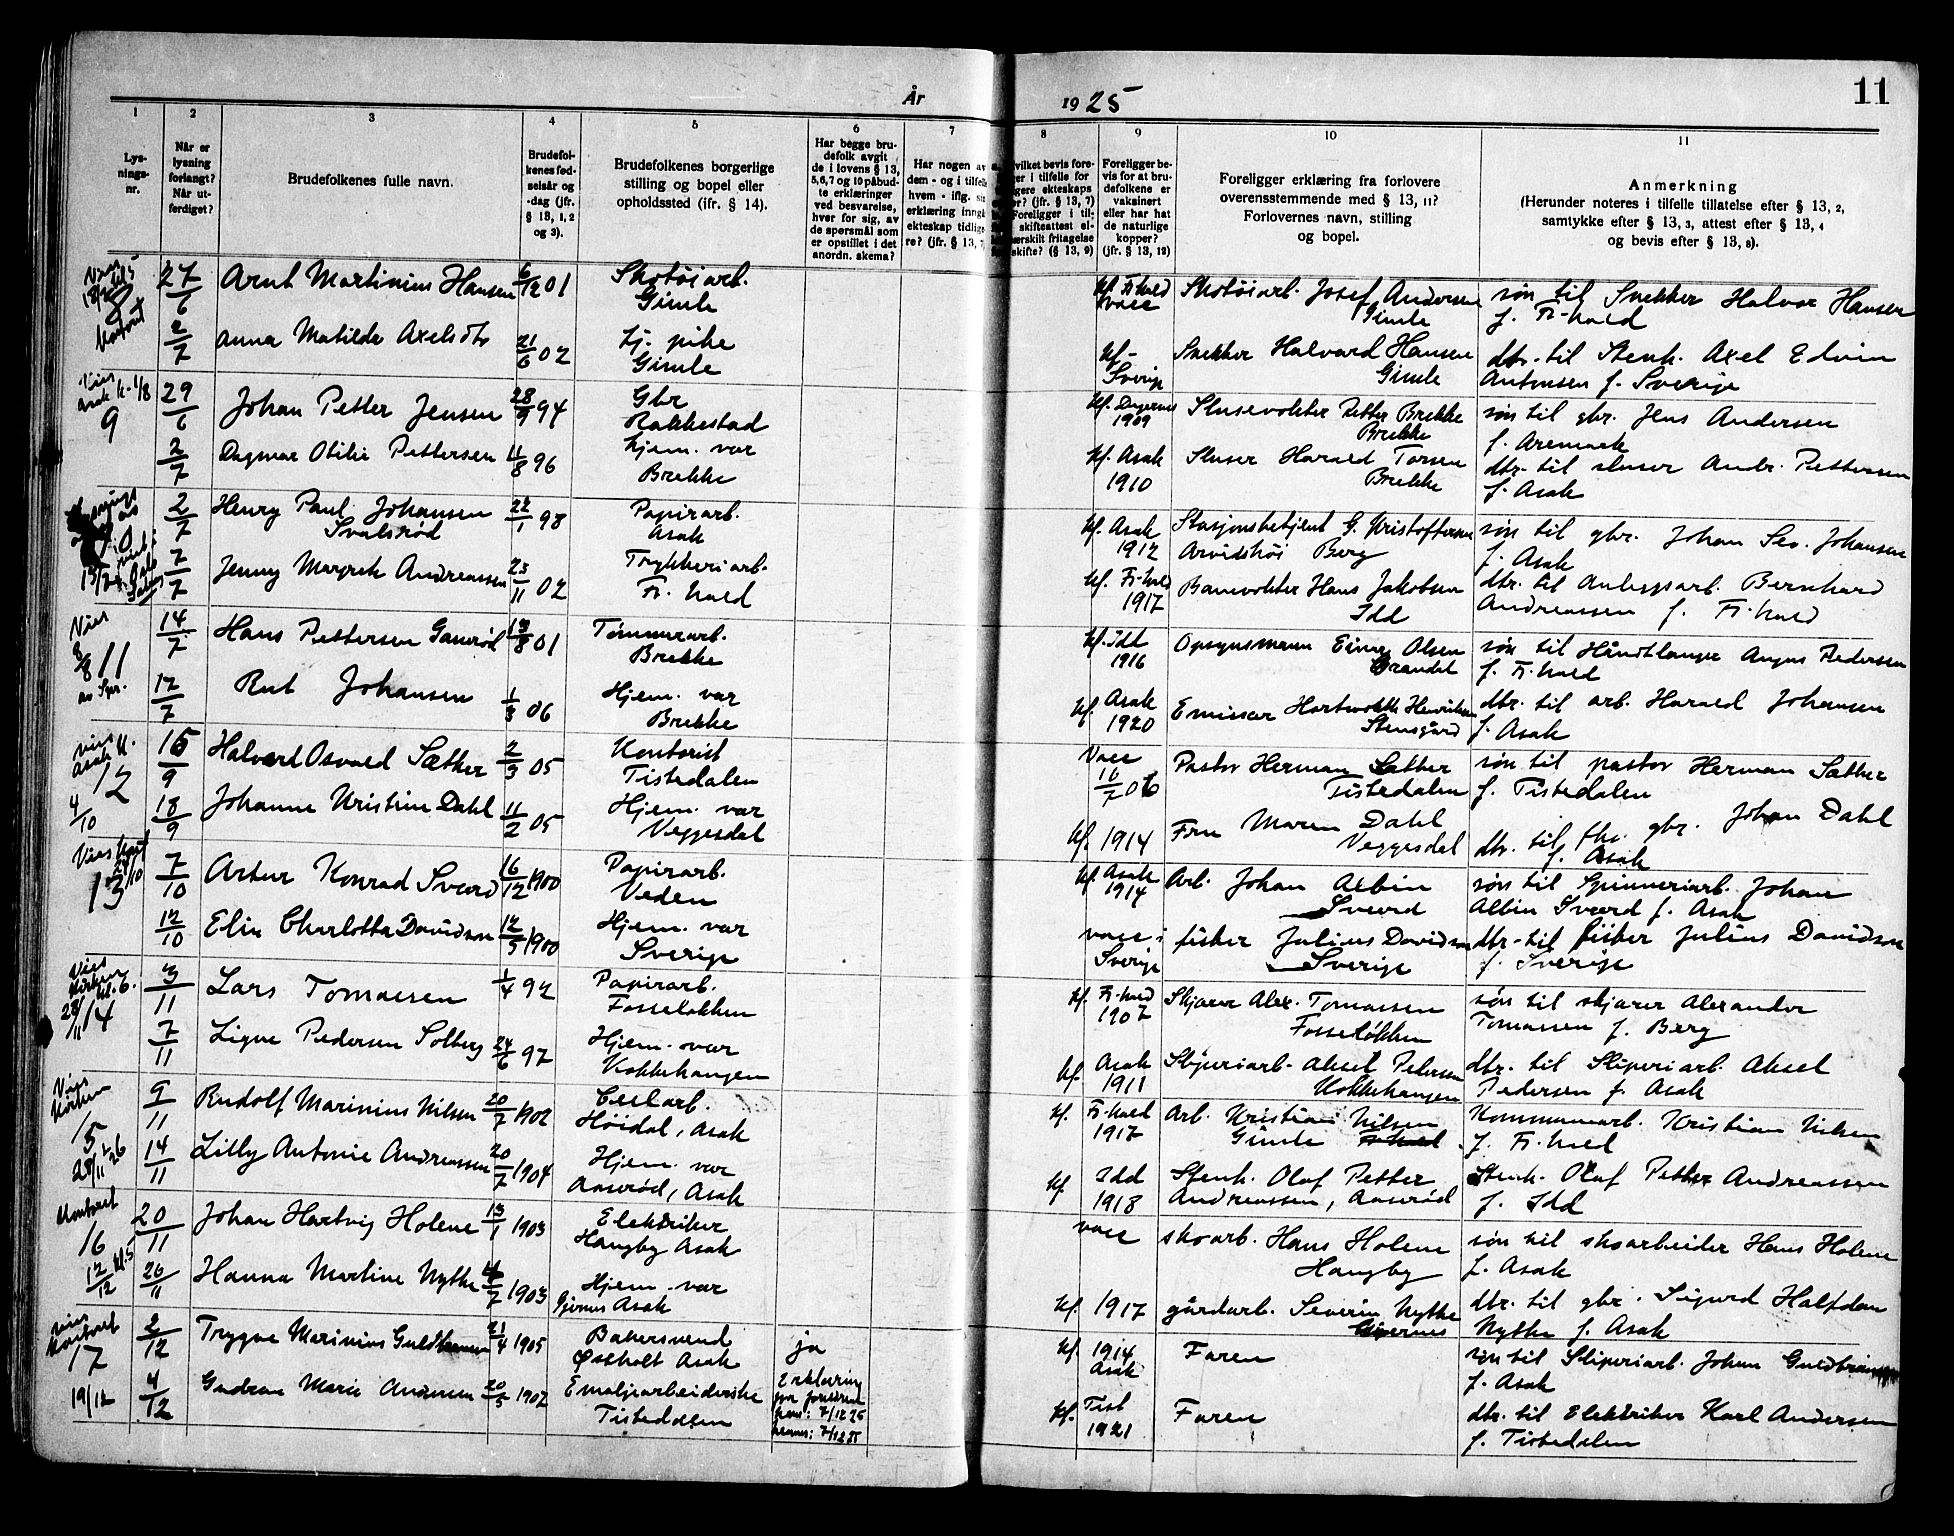 År 1925
11
1
2
3
4
5
6
7
8
9
10
11
Lys-
nings-
nr.
Når er
lysning
forlangt?
Når ut-
ferdiget?
Brudefolkenes fulle navn.
Brudefol-
kenes fød-
selsår og
-dag (jfr.
§ 13, 1, 2
og 3).
Brudefolkenes borgerlige
stilling og bopel eller
opholdssted (ifr. § 14).
Har begge bru-
defolk avgit
de i lovens § 13,
5,6,7 og 10 påbud-
te erklæringer
ved besvarelse,
hver for sig, av
de spørsmål som
er opstillet i det
anordn. skema?
Har nogen av
dem - og i tilfelle
hvem - iflg. sin
erklæring inngå
ekteskap tidlige
re? (jfr. § 13, 7
vilket bevis fore-
ger i tilfelle for
gere ekteskaps
or? (jfr. § 13, 7)
Foreligger i til-
skifteattest el-
ærskilt fritagelse
skifte? (§ 13, 9)
Foreligger be-
vis for at bru-
defolkene er
vaksinert
eller har hat
de naturlige
kopper?
(jfr. § 13, 12)
Foreligger erklæring fra forlovere
overensstemmende med § 13, 11?
Forlovernes navn, stilling
og bopel.
Anmerkning
(Herunder noteres i tilfelle tillatelse efter § 13, 2,
samtykke efter § 13, 3, attest efter § 13, 4
og bevis efter § 13, 8).
8
27/6 Arnt Martinius Hansen 6/12 01 Skotøiarb.
Gimle
kf. Fr.hald
vacc
Skotøiarb. Josef Andersen
Gimle
søn til Snekker Halvor Hansen
f. Fr.hald
2/7 Anna Matilde Axelsdtr 21/6 02 tj. pike
Gimle
kf. -
Sverige
Snekker Halvard Hansen
Gimle
dtr. til Stenh. Axel Edvin
Antonsen f. Sverige
Asak k. 1/8
9
29/6 Johan Petter Jensen 28/9 94 Gbr
Rakkestad
kf.
1909
Slusevokter Petter Brekke
Brekke
søn til gbr. Jens Andersen
f. Aremark
2/7 Dagmar Otilie Pettersen 11/8 96 hjem. vær
Brekke
kf. Asak
1910
Sluser Harald Torsen
Brekke
dtr. til sluser Andr. Pettersen
f. Asak
10
2/7 Henry Paul Johansen
Svalsrød
22/1 98 Papirarb.
Asak
kf. Asak
1912
Stasjonsbetjent G. Kristoffersen
Berg
søn til gbr. Johan Sev. Johansen
f. Asak
7/7 Jenny Margrete Andreassen 23/11 02 Trykkeriarb.
Fr. hald
kf. Fr.hald
1917
Banevokter Hans Jakobsen
Idd
dtr. til Anleggsarb. Bernhard
Andreassen f. Fr.hald
Viet
8/8 11
av Spr.
14/7 Hans Pettersen 13/8 01 Tømmerarb.
Brekke
kf. Idd
1916
Opsynsmann Einar Olsen
søn til Håndtlanger August Pedersen
f. Fr.hald
17/7 Rut Johansen 1/3 06 Hjem. vær
Brekke
kf. Asak
1920
Emissær Henriksen
Stensgård
dtr. til arb. Harald Johansen
f. Asak
viet
Asak k.
12
4/10
15/9 Halvard Osvald Sæther 2/3 05 Kontorist
Tistedalen
Vacc
16/7 06
Pastor Herman Sæther
Tistedalen
søn til pastor Herman Sæther
f. Tistedalen
18/9 Johanne Kristine Dahl 11/2 05 Hjem. vær
Veggesdal
kf. 1914
Fru Maren Dahl
Veggesdal
dtr. til fhv. gbr. Johan Dahl
f. Asak
13
7/10 Artur Konrad Sværd 16/12 1900 Papirarb.
Veden
kf Asak
1914
Arb. Johan Albin
Sværd
søn til Spinneriarb. Johan
Albin Sværd f. Asak
12/10 Elin Charlotta Davidson 12/5 1900 Hjem. vær
Sverige
vacc i
Sverige
fisker Julius Davidson
Sverige
dtr. til fisker Julius Davidson
f. Sverige
Viet
Kirken
kl. 6.
14
3/11 Lars Tomassen 1/4 92 Papirarb.
Fosseløkken
kf. Fr.hald
1907
Skjærer Alex. Tomassen
Fosseløkken
søn til skjærer Alexander
Tomassen f. Berg
7/11 Signe Pedersen Solberg 24/6 97 Hjem. vær
Kokkehaugen
kf. Asak
1911
Sliperiarb. Aksel Petersen
Kokkehaugen
dtr. til Sliperiarb. Aksel
Pedersen f. Asak
Viet
Kirken
15
9/11 Rudolf Marinius Nilsen 20/7 1902 Cell.arb.
Høidal, Asak
kf. Fr.hald
1917
Arb. Kristian Nilsen
Gimle
Kommunearb. Kristian Nilsen
f. Fr.hald
14/11 Lilly Antonie Andreassen 20/7 1904 Hjem. vær
Aaserød, Asak
kf Idd
1918
Stenh. Olaf Petter
Andreassen, Aaserød
Stenh. Olaf Petter Andreassen
f. Idd
Kontoret
16
12/12 kl. 5
20/11 Johan Hartvig Holene 13/1 1903 Elektriker
Hangby Asak
vacc
skoarb. Hans Holene
Hangby
søn til skoarbeider Hans Holene
f. Asak
26/11 Hanna Martine Nythe 1903 Hjem. vær
Asak
kf. 1917
gårdarb. Severin Nythe
dtr. til gbr. Sigurd Halfdan
Nythe f. Asak
viet
Kontoret
17
19/12
2/12 Trygve Marinius 21/4 1905 Bakersvend
Østholt Asak
ja
kf 1914
Asak
Faren
søn til Sliperiarb. Johan
f. Asak
4/12 Gudrun Marie Andersen 20/5 1907 Emaljearbeiderske
Tistedalen
Erklæring
hans: 7/12 25
hennes: 7/12 25
kf. Tist
1921
Faren
dtr. til Elektriker Karl Andersen
f. Tistedalen